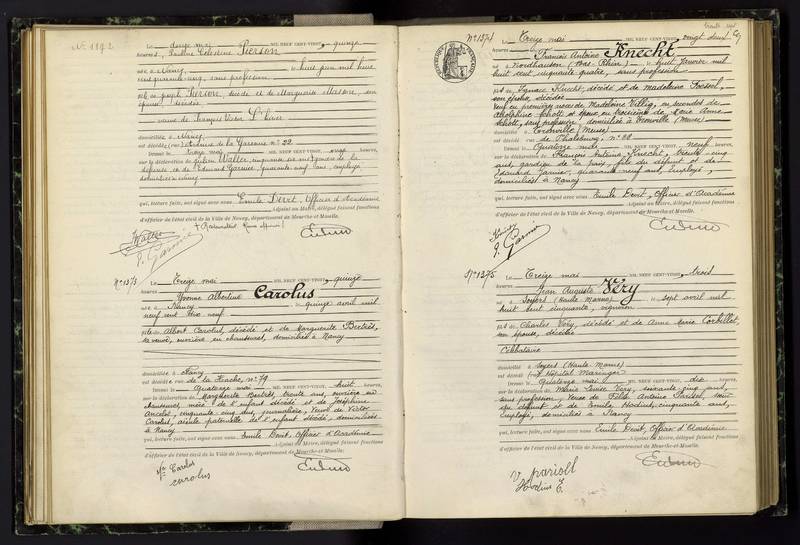 Nº 1372 Le douze mai MIL NEUF CENT VINGT, quinze
heures, Pauline Célestine Pierson
née à Nancy, le huit juin mil huit
cent quarante-cinq, sans profession
fille de Joseph Pierson, décédé et de Marguerite Masson, son
épouse décédée
veuve de François Victor
domiciliée à Nancy
est décédée rue de la Garenne nº 22
Dressé le treize mai MIL NEUF CENT VINGT, onze heures,
sur la déclaration de Walter, cinquante six ans, gardien de la
et de Edouard Garnier, quarante-neuf ans, employé
domiciliés à Nancy
qui, lecture faite, ont signé avec nous Emile Devit, Officier d'Académie
Adjoint au Maire, délégué faisant fonctions
d'officier de l'état civil de la Ville de Nancy, département de Meurthe-et-Moselle.
Walter
E. Garnier
Nº 1373 Le Treize mai MIL NEUF CENT VINGT, quinze
heures Yvonne Albertine Carolus
née à Nancy le quinze avril mil
neuf cent dix neuf
fille de Albert Carolus, décédé et de Marguerite Bertrès,
sa veuve, ouvrière en chaussures, domiciliée à Nancy
domiciliée à Nancy
est décédée rue de la Hache, nº 79
Dressé le Quatorze mai MIL NEUF CENT VINGT, huit heures,
sur la déclaration de Marguerite Bertrès, trente ans, ouvrière en
chaussures, mère de l'enfant décédé et de Joséphine
Ancelot, cinquante-cinq ans, journalière, veuve de Victor
Carolus, aïeule paternelle de l'enfant décédé, domiciliées
à Nancy
qui, lecture faite, ont signé avec nous Emile Devit, Officier d'Académie
Adjoint au Maire, délégué faisant fonctions
d'officier de l'état civil de la Ville de Nancy, département de Meurthe-et-Moselle.
Vve Carolus
carolus
Nº 1374 Le Treize mai MIL NEUF CENT VINGT, vingt deux
heures François Antoine Knecht
né à Nordhausen (Bas-Rhin) le huit Janvier mil
huit cent cinquante quatre, sans profession
fils de Ignace Knecht, décédé et de Madeleine
son épouse, décédée
Veuf en premières noces de Madeleine Villig, en secondes de
Adolphine Schott et époux en troisième de Marie Anne
Schott, sans profession, domiciliée à Tronville (Meuse)
domicilié à Tronville (Meuse)
est décédé rue de Phalsbourg, nº 22
Dressé le Quatorze mai MIL NEUF CENT VINGT, neuf heures,
sur la déclaration de François Antoine Knecht, trente cinq
ans, gardien de la paix, fils du défunt et de
Edouard Garnier, quarante neuf ans, Employé,
domiciliés à Nancy
qui, lecture faite, ont signé avec nous Emile Devit, Officier d'Académie
Adjoint au Maire, délégué faisant fonctions
d'officier de l'état civil de la Ville de Nancy, département de Meurthe-et-Moselle.
Knecht
E. Garnier
Nº 1375 Le Treize mai MIL NEUF CENT VINGT, trois
heures Jean Auguste Véry
né à Soyers (Haute Marne) le sept avril mil
huit cent cinquante, vigneron
fils de Charles Véry, décédé et de Anne Marie Corbillet,
son épouse, décédée
Célibataire
domicilié à Soyers (Haute Marne)
est décédé Hôpital Maringer
Dressé le Quatorze mai MIL NEUF CENT VINGT, dix heures,
sur la déclaration de Marie Louise Véry, soixante-cinq ans,
sans profession, veuve de Félix Antoine Parisot, sœur
du défunt et de Emile Hodins, cinquante ans,
Employé, domiciliés à Nancy
qui, lecture faite, ont signé avec nous Emile Devit, Officier d'Académie
Adjoint au Maire, délégué faisant fonctions
d'officier de l'état civil de la Ville de Nancy, département de Meurthe-et-Moselle.
V parisot
Hodins E.